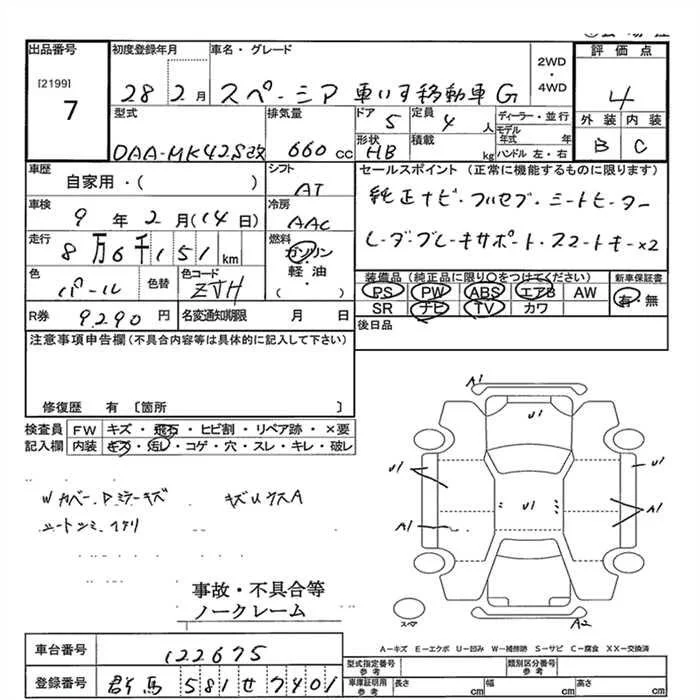 出品番号 初度登録年月 車名・グレード 評価点
[2199] 7
28 2月 スペーシア 車いす移動車 G
2WD・4WD
4
型式 排気量 ドア 5 定員 4人 ディーラー・並行 外装 内装
DAA-MK42S改 660cc 形状 HB 積載 kg モデル年式 年 ハンドル 左・右 B C
車歴 シフト セールスポイント(正常に機能するものに限ります)
自家用・( ) AT
純正ナビ・フルセブ・シートヒーター
車検 冷房
9年2月(14日) AAC
レーダーブレーキサポート・スマートキー×2
走行 燃料
8万6千151km ガソリン 軽油 ( )
色 色替 色コード 装備品(純正品に限り○をつけてください) 新車保証書
パール ZJH PS PW ABS エアB AW 有・無
SR ナビ TV カワ
R券 9,290円 名変通知期限 月 日 後日品
注意事項申告欄(不具合内容等は具体的に記入して下さい)
修復歴 有〔箇所 〕
検査員 FW キズ・飛石・ヒビ割・リペア跡・×要
記入欄 内装 キズ・汚レ・コゲ・穴・スレ・キレ・破レ
Wカバー・Dミラーキズ キズUウスA
A1
U1
U1
U1
U1
A1
A1
A2
事故・不具合等
ノークレーム
A-キズ E-エクボ U-凹み W-補修跡 S-サビ C-腐食 XX-交換済
車台番号 122675
型式指定番号 参考 類別区分番号 参考
登録番号 群馬 581 せ 7401
車庫証明用 参考 長さ 幅 高さ